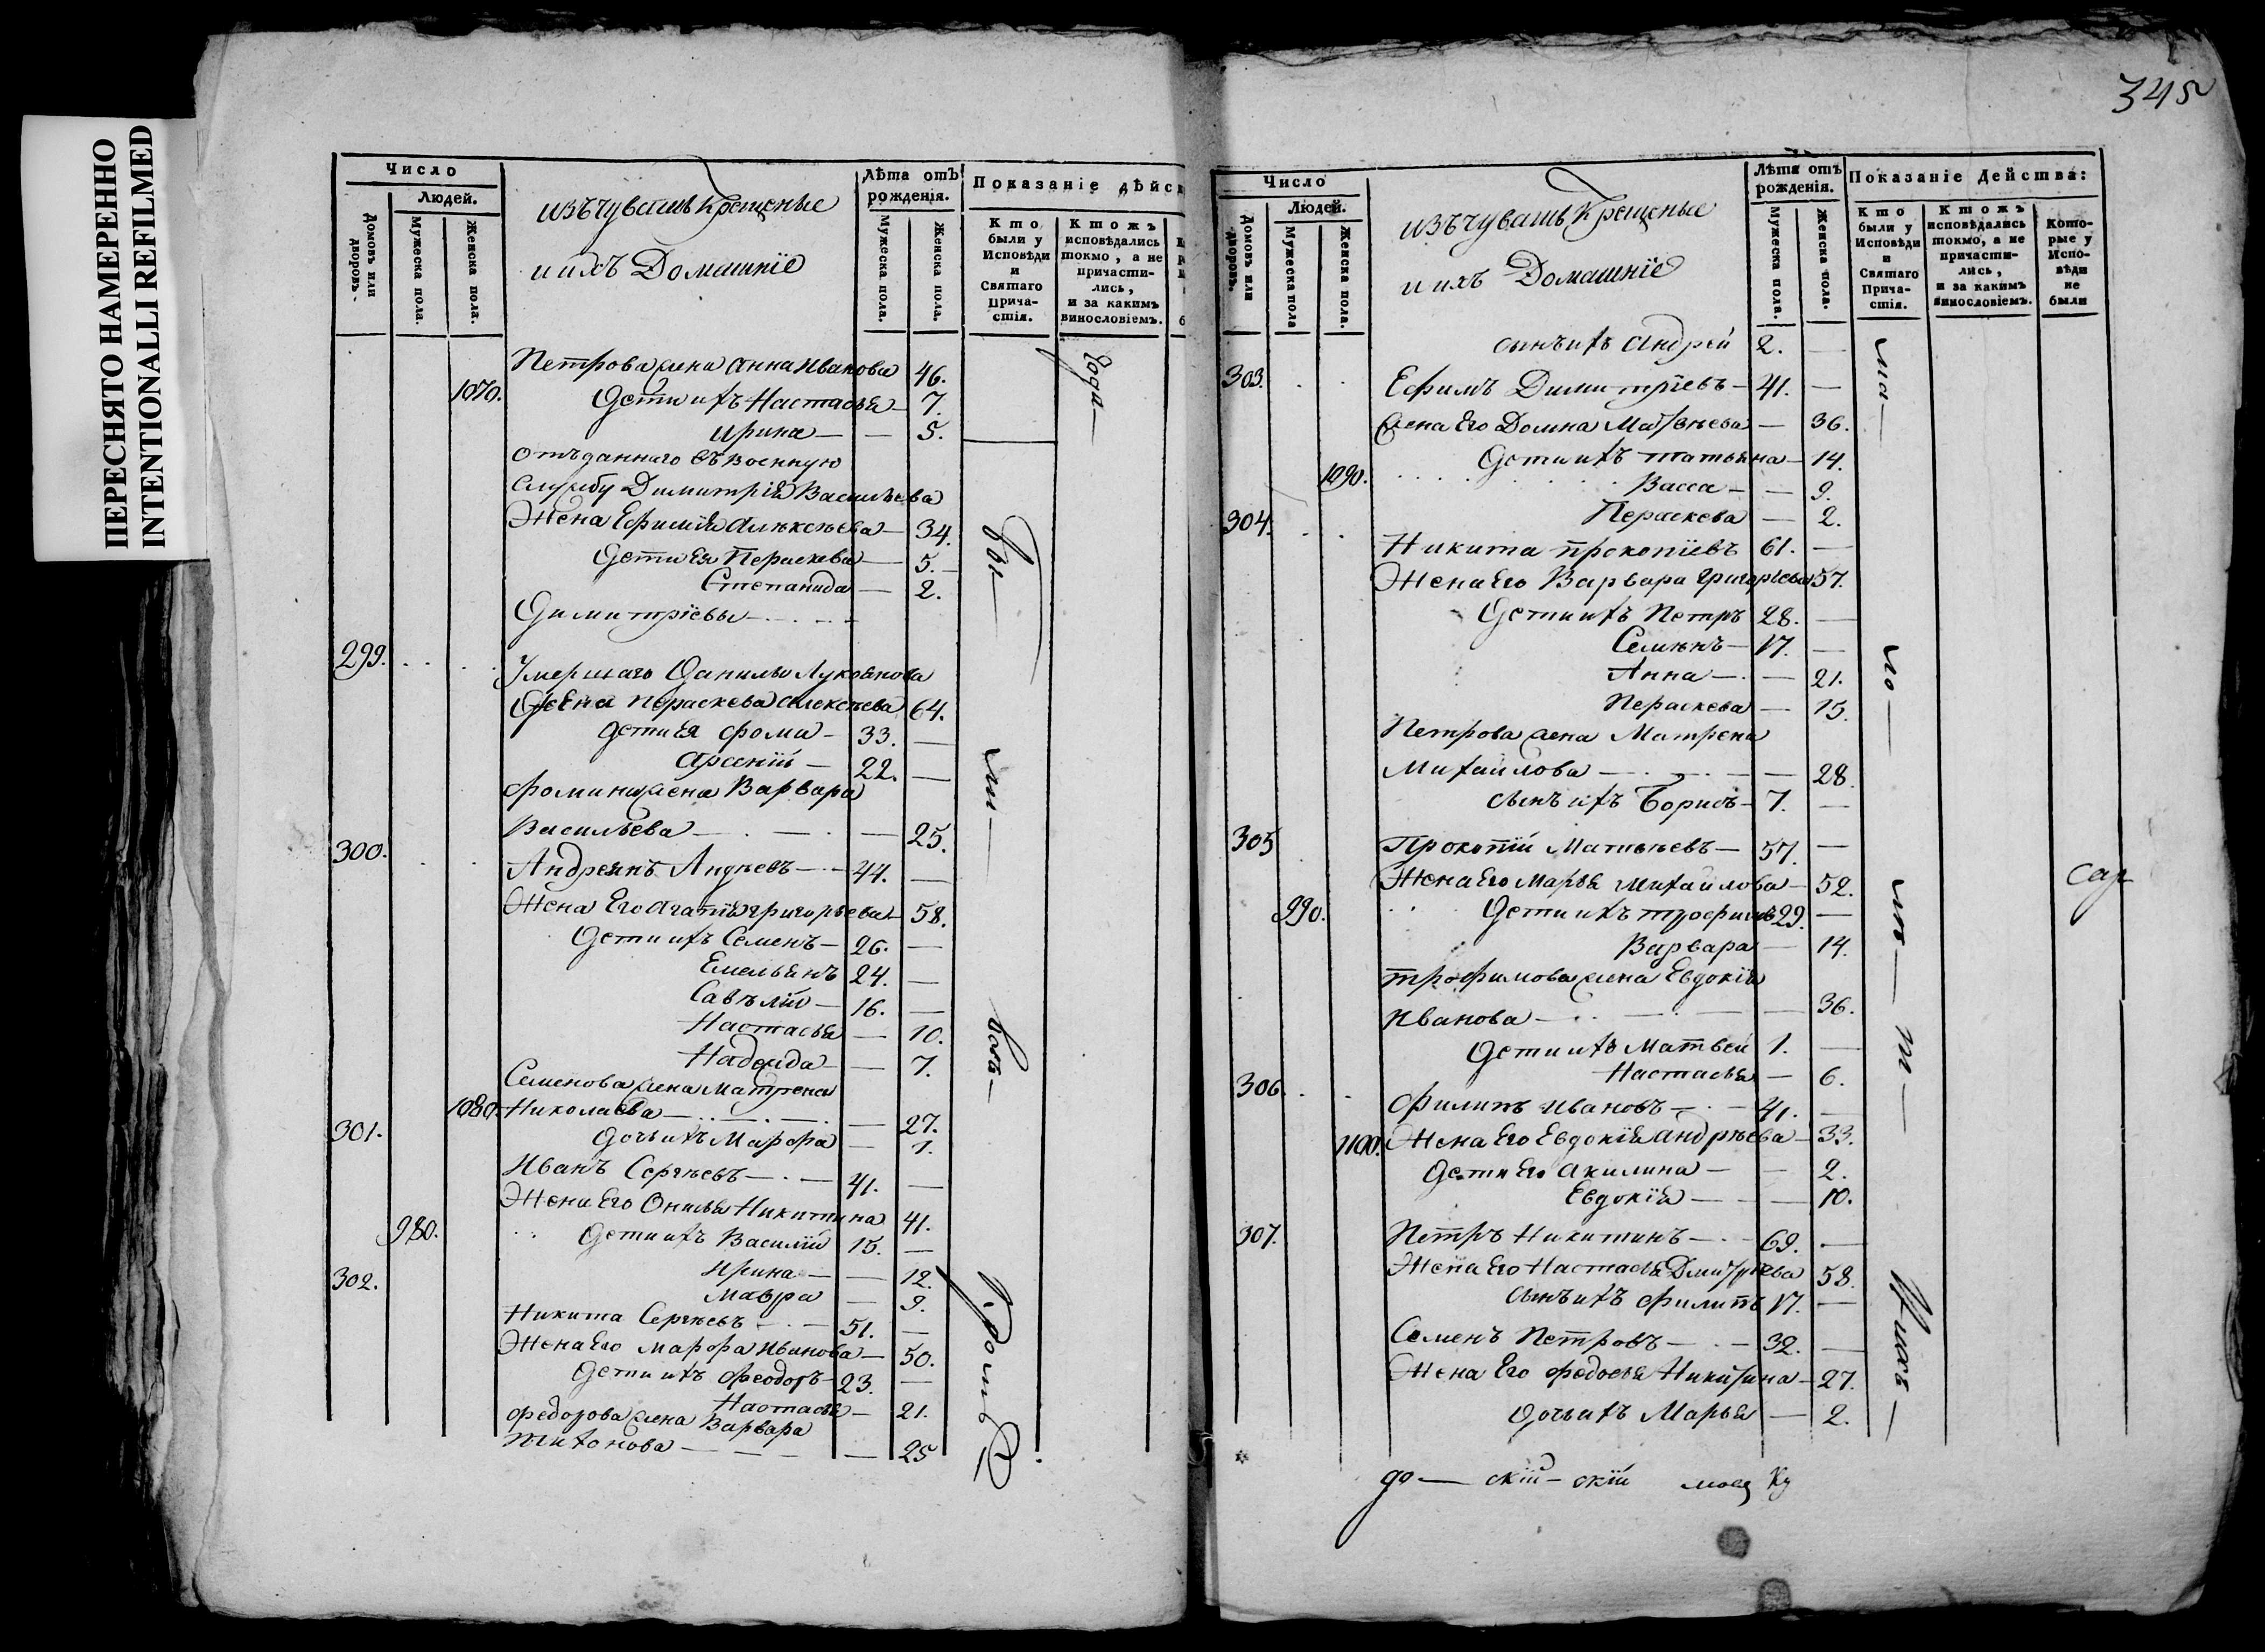 ПЕРЕСНЯТО НАМЕРЕННО
INTENTIONALLI REFILMED
Число
Людей.
Домовъ или дворовъ.
Мужеска пола.
Женска пола.
изъ чувашъ крещеные
и ихъ Домашніе
Лѣта отъ рожденія.
Мужеска пола.
Женска пола.
Показаніе дѣйс
Кто были у Исповѣди и Святаго Причастія.
Ктожъ исповѣдались токмо, а не причастились, и за какимъ винословіемъ.
Петрова жена Анна Иванова 46.
1070. Дети ихъ Настасья — 7.
Ирина — — 5.
Отъданнаго въ военную
службу Димитрія Васильева
Жена Ефимія Алексеева — 34.
Дети ея Пераскева — 5.
Степанида — 2.
Димитріевы
299. Умершаго Данилы Лукоянова
Жена Пераскева Алексеева 64.
дети ея Фома — 33. —
Арсеній — 22. —
Фомина жена Варвара
Васильева — — 25.
300. Андреянъ Андреевъ — 44. —
Жена Его Агапія Григорьева 58.
Дети ихъ Семенъ — 26. —
Емельянъ 24. —
Савѣлій — 16. —
Настасья — 10.
Надежда — 7.
Семенова жена Матрена
1080. Николаева — — 27.
301. Дочь ихъ Марфа — 1.
Иванъ Сергѣевъ — 41. —
Жена Его Онисья Никитина 41.
980. Дети ихъ Василій 15. —
Ирина — — 12.
302. Мавра — 9.
Никита Сергѣевъ — 51. —
Жена Его Марфа Иванова — 50.
Дети ихъ Феодоръ — 23. —
Настасья — 21.
Федорова жена Варвара
Титонова — — 25
Года —
бы —
ли —
вовъ —
345
Число
Людей.
Домовъ или дворовъ.
Мужеска пола
Женска пола.
изъ чувашъ крещеные
и ихъ Домашніе
Лѣта отъ рожденія.
Мужеска пола.
Женска пола.
Показаніе Действа:
Кто были у Исповѣди и Святаго Причастія.
Ктожъ исповѣдались токмо, а не причастились, и за какимъ винословіемъ.
Которые у Исповѣди не были
сынъ ихъ Андрей 2. —
303. Ефимъ Димитріевъ — 41. —
Жена Его Домна Матвѣева — 36.
Дети ихъ Татьяна — 14.
1090. Васса — — 9.
304. Пераскева — 2.
Никита Прокопіевъ 61. —
Жена Его Варвара Григорьева 57.
Дети ихъ Петръ 28. —
Семенъ — 17. —
Анна — — 21.
Пераскева — 15.
Петрова жена Матрена
Михайлова — — 28.
сынъ ихъ Борисъ — 7. —
305 Прокопій Матвѣевъ — 57. —
Жена Его Марья Михайлова — 52.
990. Дети ихъ Трофимъ 29. —
Варвара — 14.
Трофимова жена Евдокія
Иванова — — 36.
Дети ихъ Матвей 1. —
Настасья — 6.
306. Филипъ Ивановъ — 41. —
1100. Жена Его Евдокія Андрѣева — 33.
Дети Его Акилина — — 2.
Евдокія — — 10.
307. Петръ Никитинъ — 69. —
Жена Его Настасья Дмитрева 58.
сынъ ихъ Филипъ 17. —
Семенъ Петровъ — 32. —
Жена Его Федосья Никитина — 27.
Дочь ихъ Марья — 2.
ма —
но —
сар
до — скій — скій